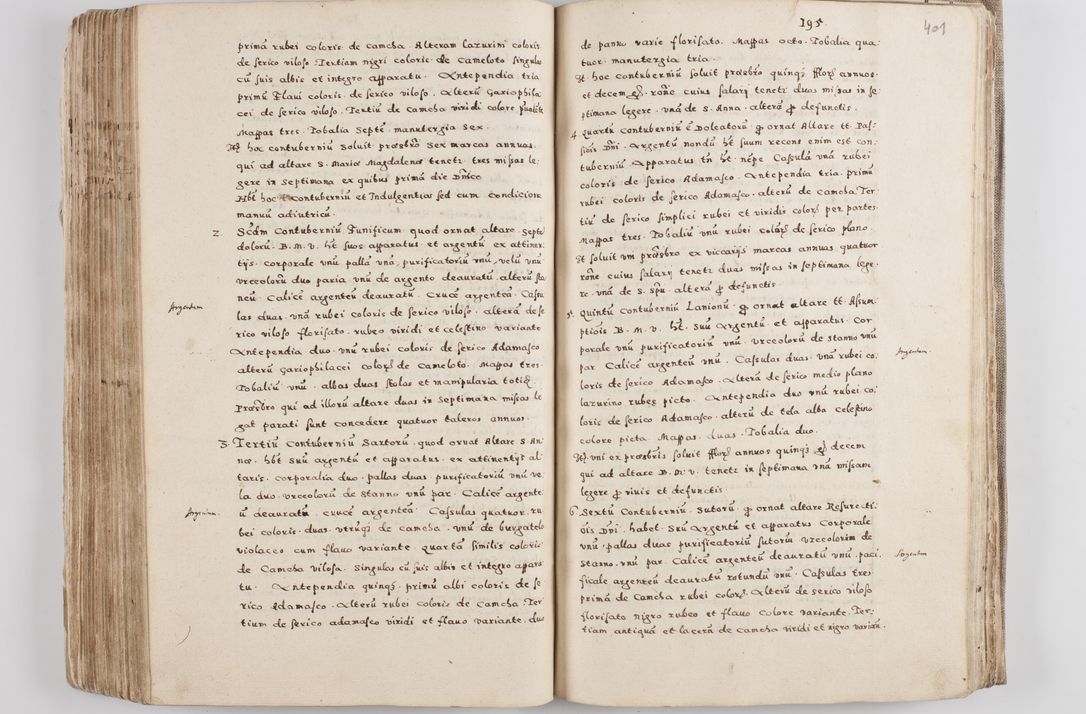 primā rubei coloris de camcha. Alteram lazurini coloris
de serico viloso. Tertiam nigri coloris de Cameloto singulas
cū suis albis et integro apparatu. Antependia tria
primū flavi coloris de serico viloso. Alterū gariophila
cei de serico viloso. Tertiū de camcha viridi colore
Mappas tres. Tobalia Septē. manutergia sex.
Itē hoc contuberniū soluit prōesbro sex marcas annuas.
qui ad altare S. Mariae Magdalenae tenetr tres missas le
gere in septimana ex quibus primā die Dnico
Hbt hoc contuberniū et Indulgentias sed cum condicione
manuū adiutricū.
2. Scdm Contuberniū Funificum quod ornat altare septē
dolorū B. M. V. ht suos apparatus et argentū ex attinen
tijs. corporale unū palla una, purificatoriū unū, velū unū
urceolorū duo paria unū de argento deauratū alterū sta
neū. Calicē argenteū deauratū. Crucē argenteā. Casu
las duas. unā rubei coloris de serico viloso. alterā de se
rico viloso florisato. rubeo viridi et celestino variante
Antependia duo. unū rubei coloris de serico Adamasco
alterū gariophilacei colors de Cameloto. Mappas tres.
Tobaliū unū. albas duas stolas et manipularia totidē.
Proesbro qui ad illorū altare duas in septimana missas le
gat parati sunt concedere quatuor taleros annuos.
3. Tertiū Contuberniū Sartorū quod ornat Altare S. An
nae. hbt suū argentū et apparatus. ex attinentijs al
taris. corporalia duo. pallas duas. purificatoriū unū ve
la duo. urceolorū de stanno unū par. Calicē argente
ū deauratū. crucē argenteā. Casulas quatuor. ru
bei coloris. duas. utrūqs de camcha. unū de burgatelo
violaceo cum flavo variante. quartā similis coloris
de Camcha vilosa. Singulas cū suis albis et integro appara
tu. Antependia quinqs. primū albi coloris de se
rico Adamasco. Alterū rubei coloris de Camcha. Ter
tium de serico adamasco viridi et flavo variante. duo
Argentum
Argentum.
195.
401
de panno vario florisato. Mappas octo. Tobalia qua
tuor. manutergia tria.
Et hoc contuberniū soluit proesbro quinqs florS annuos.
et decem grs. rōne cuius salarij tenetr duas missas in se
ptimana legere. unā de S. Anna. alterā p defunctis.
4. Quartū contuberniū ē Doleatorū q ornat Altare tt. Pas
siōis Dni. Argentū nondū ht suum recens enim est con
tuberniū. Apparatus tn ht. nēpe Casulā unā rubei
coloris de serico Adamasco. Antependia tria. primū
rubei coloris de serico Adamasco. alterū de camcha. Ter
tiū de serico simplici rubei et viridis colors per partes.
Mappas tres. Tobaliū unū rubei colors de serico plano.
Et soluit uni proesbro ex vicarijs marcas annuas quatuor
rōne cuius salarij tenetr duas missas in septimana lege
re. unā de S. Spū. alterā p defunctis.
5. Quintū Contuberniū Lanionū. q ornat altare tt. Assum
ptiōis B. M. V. ht. Suū Argentū et apparatus. Cor
porale unū purificatoriū unū. urceolorū de stanno unū
par. Calicē argenteū unū. Casulas duas. unā rubei co
loris de serico Adamasco. Alterā de serico medio plano
lazurino rubeo picto. Antependia duo unū rubei co
loris de serico Adamasco. alterū de tela alba celestino
colore picta. Mappas. duas. Tobalia duo.
Itē uni ex proesbris soluit flors annuos quinqs et grs decem
qui ad altare B. M. V. tenetr in septimana unā missam
legere p vivis et defunctis.
6. Sextū Contuberniū Sutorū q ornat altare Resurecti
ōis Dni. habet Suū Argentū et apparatus. Corporale
unū. pallas duas purificatoriū sutorū urceolorum de
Stanno. unū par. Calicē argenteū deauratū unū. paci
ficale argenteū deauratū rotundū unū. Casulas tres
primā de Camcha rubei colors. Alterū de serico viloso
florisato nigro rubeo et flavo colore variante. Ter
tiam antiquā et lacerā de camcha viridi et nigro variān.
Argentum
Argentum